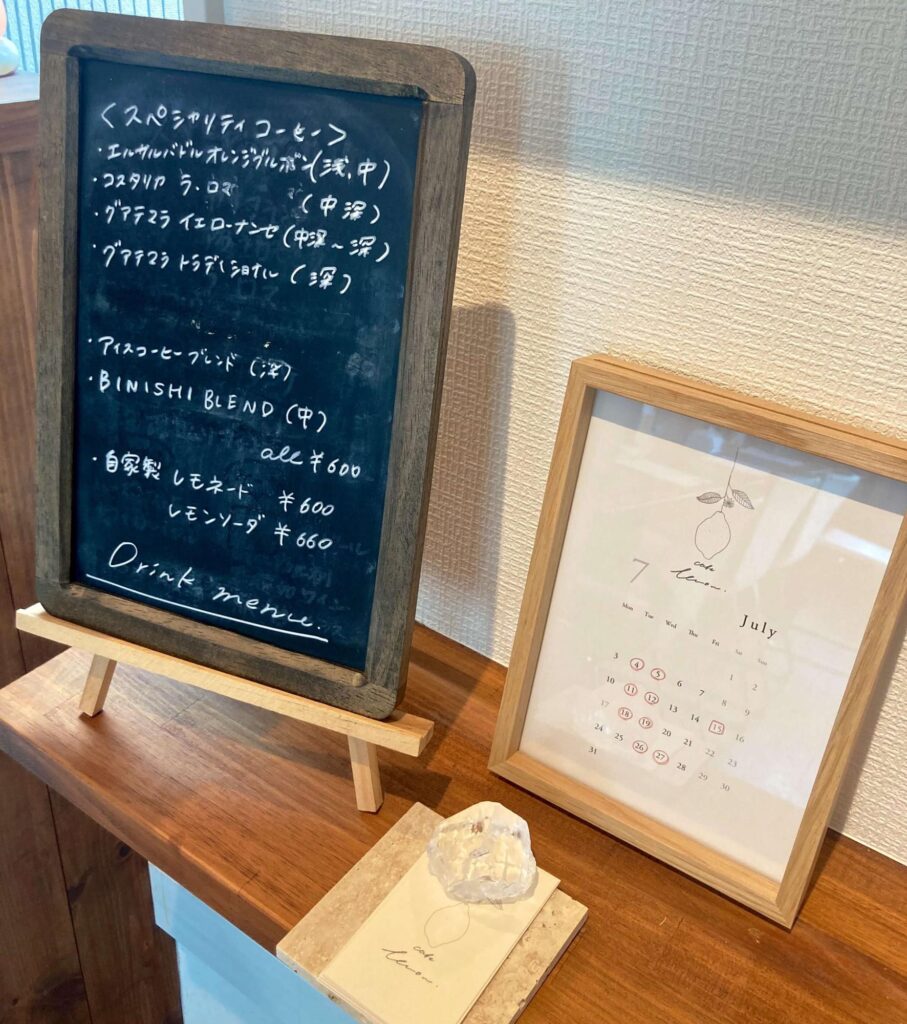 〈スペシャリティコーヒー〉
・エルサルバドル オレンジブルボン(浅,中)
・コスタリカ ラ・ロマ (中深)
・グアテマラ イエローナンセ(中深～深)
・グアテマラ トラディショナル (深)
・アイスコーヒーブレンド (深)
・BINISHI BLEND (中)
all ¥600
・自家製 レモネード ¥600
レモンソーダ ¥660
Drink menu.
cafe
lemon.
7
July
Mon Tue Wed Thu Fri Sat Sun
1 2
3 4 5 6 7 8 9
10 11 12 13 14 15 16
17 18 19 20 21 22 23
24 25 26 27 28 29 30
31
cafe
lemon.